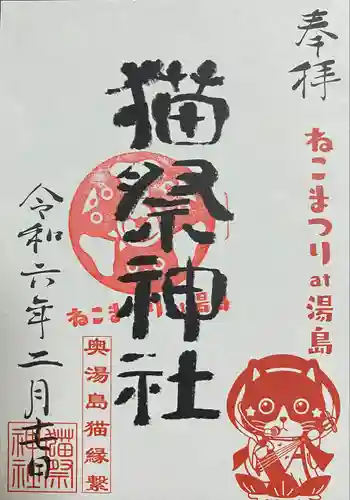 奉拝
ねこまつり at 湯島
猫祭神社
ねこまつり
奥湯島猫縁繋
令和六年二月廿日
猫祭神社